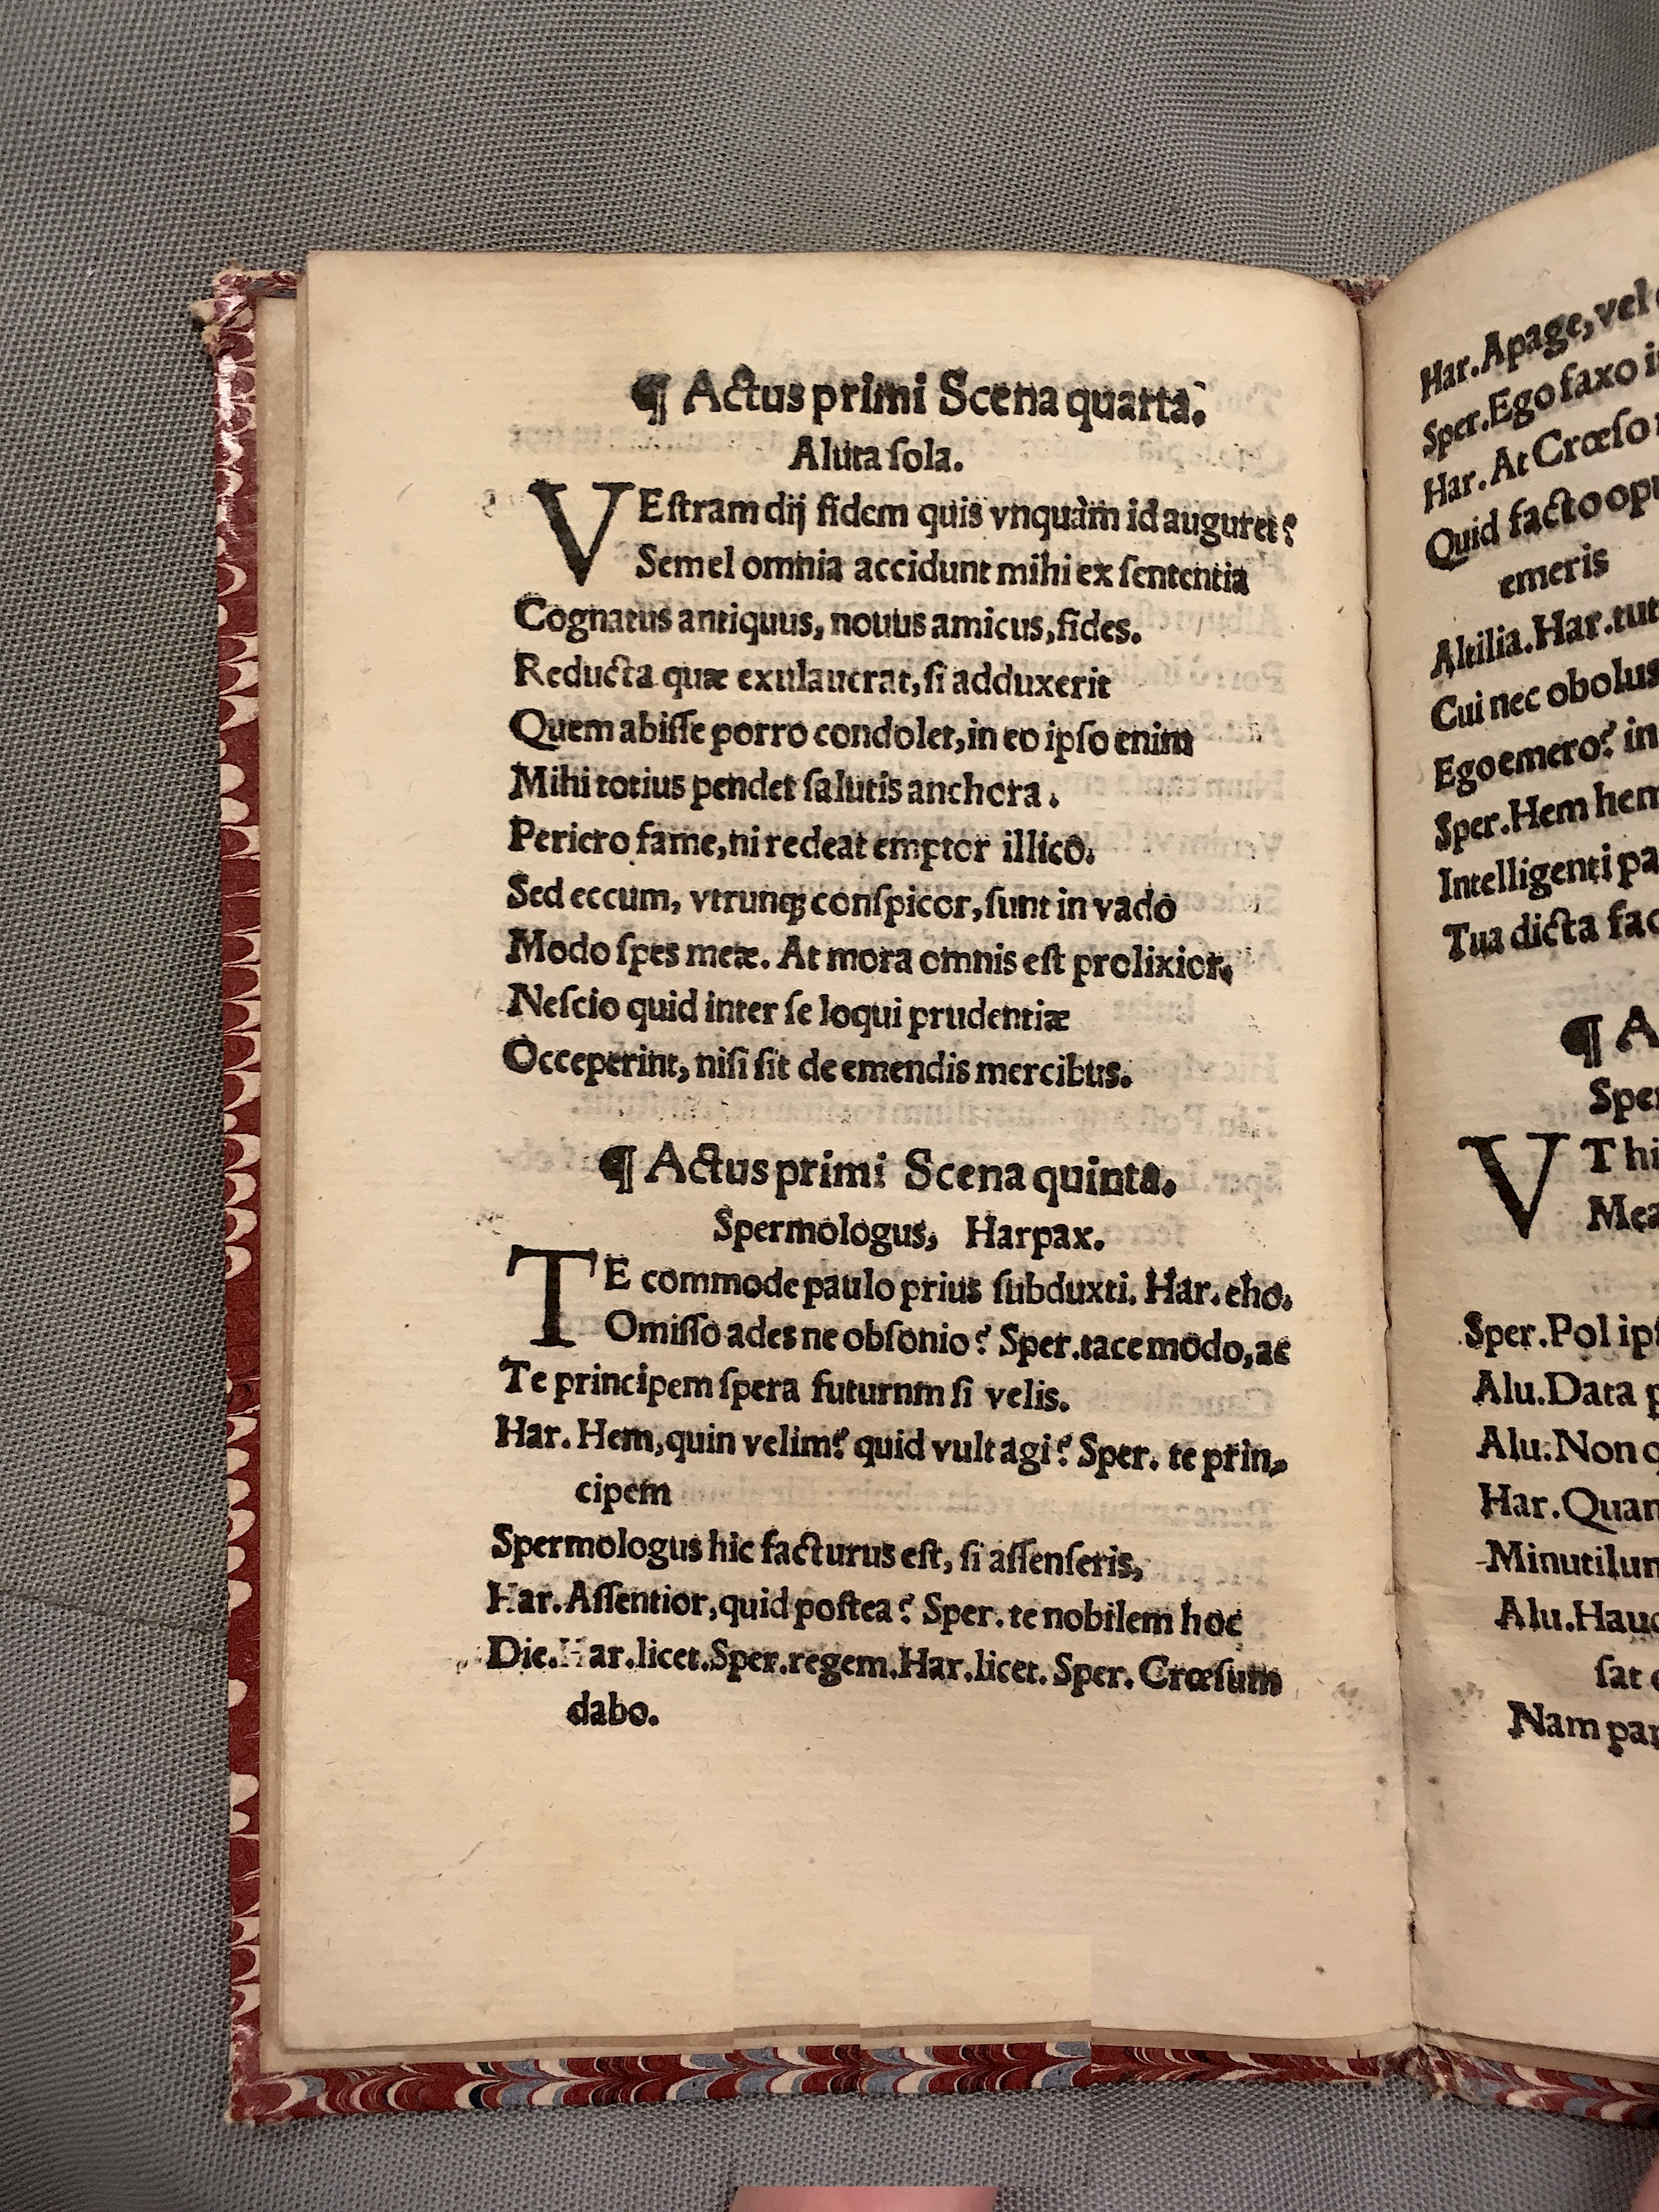 ¶ Actus primi Scena quarta.
Aluta ſola.
VEſtram dij fidem quis vnquàm id auguret?
Semel omnia accidunt mihi ex ſententia
Cognatus antiquus, nouus amicus, fides.
Reducta quæ exulauerat, ſi adduxerit
Quem abiſſe porro condolet, in eo ipſo enim
Mihi totius pendet ſalutis anchora.
Periero fame, ni redeat emptor illico.
Sed eccum, vtrunqꝫ conſpicor, ſunt in vado
Modo ſpes meæ. At mora omnis eſt prolixior,
Neſcio quid inter ſe loqui prudentiæ
Occeperint, niſi ſit de emendis mercibus.
¶ Actus primi Scena quinta.
Spermologus, Harpax.
TE commode paulo prius ſubduxti. Har. eho.
Omiſſo ades ne obſonio? Sper. tace modo, ac
Te principem ſpera futurnm ſi velis.
Har. Hem, quin velim? quid vult agi? Sper. te prin-
cipem
Spermologus hic facturus eſt, ſi aſſenſeris,
Har. Aſſentior, quid poſtea? Sper. te nobilem hoc
Die. Har. licet. Sper. regem. Har. licet. Sper. Crœſum
dabo.
Har. Apage, vel
Sper. Ego faxo
Har. At Crœſo
Quid facto
emeris
Altilia. Har.
Cui nec obolus
Ego emero? in
Sper. Hem hem
Intelligenti
Tua dicta
¶ A
VT
Sper. Pol
Alu. Data
Alu. Non
Har.
Alu.
ſat
Nam